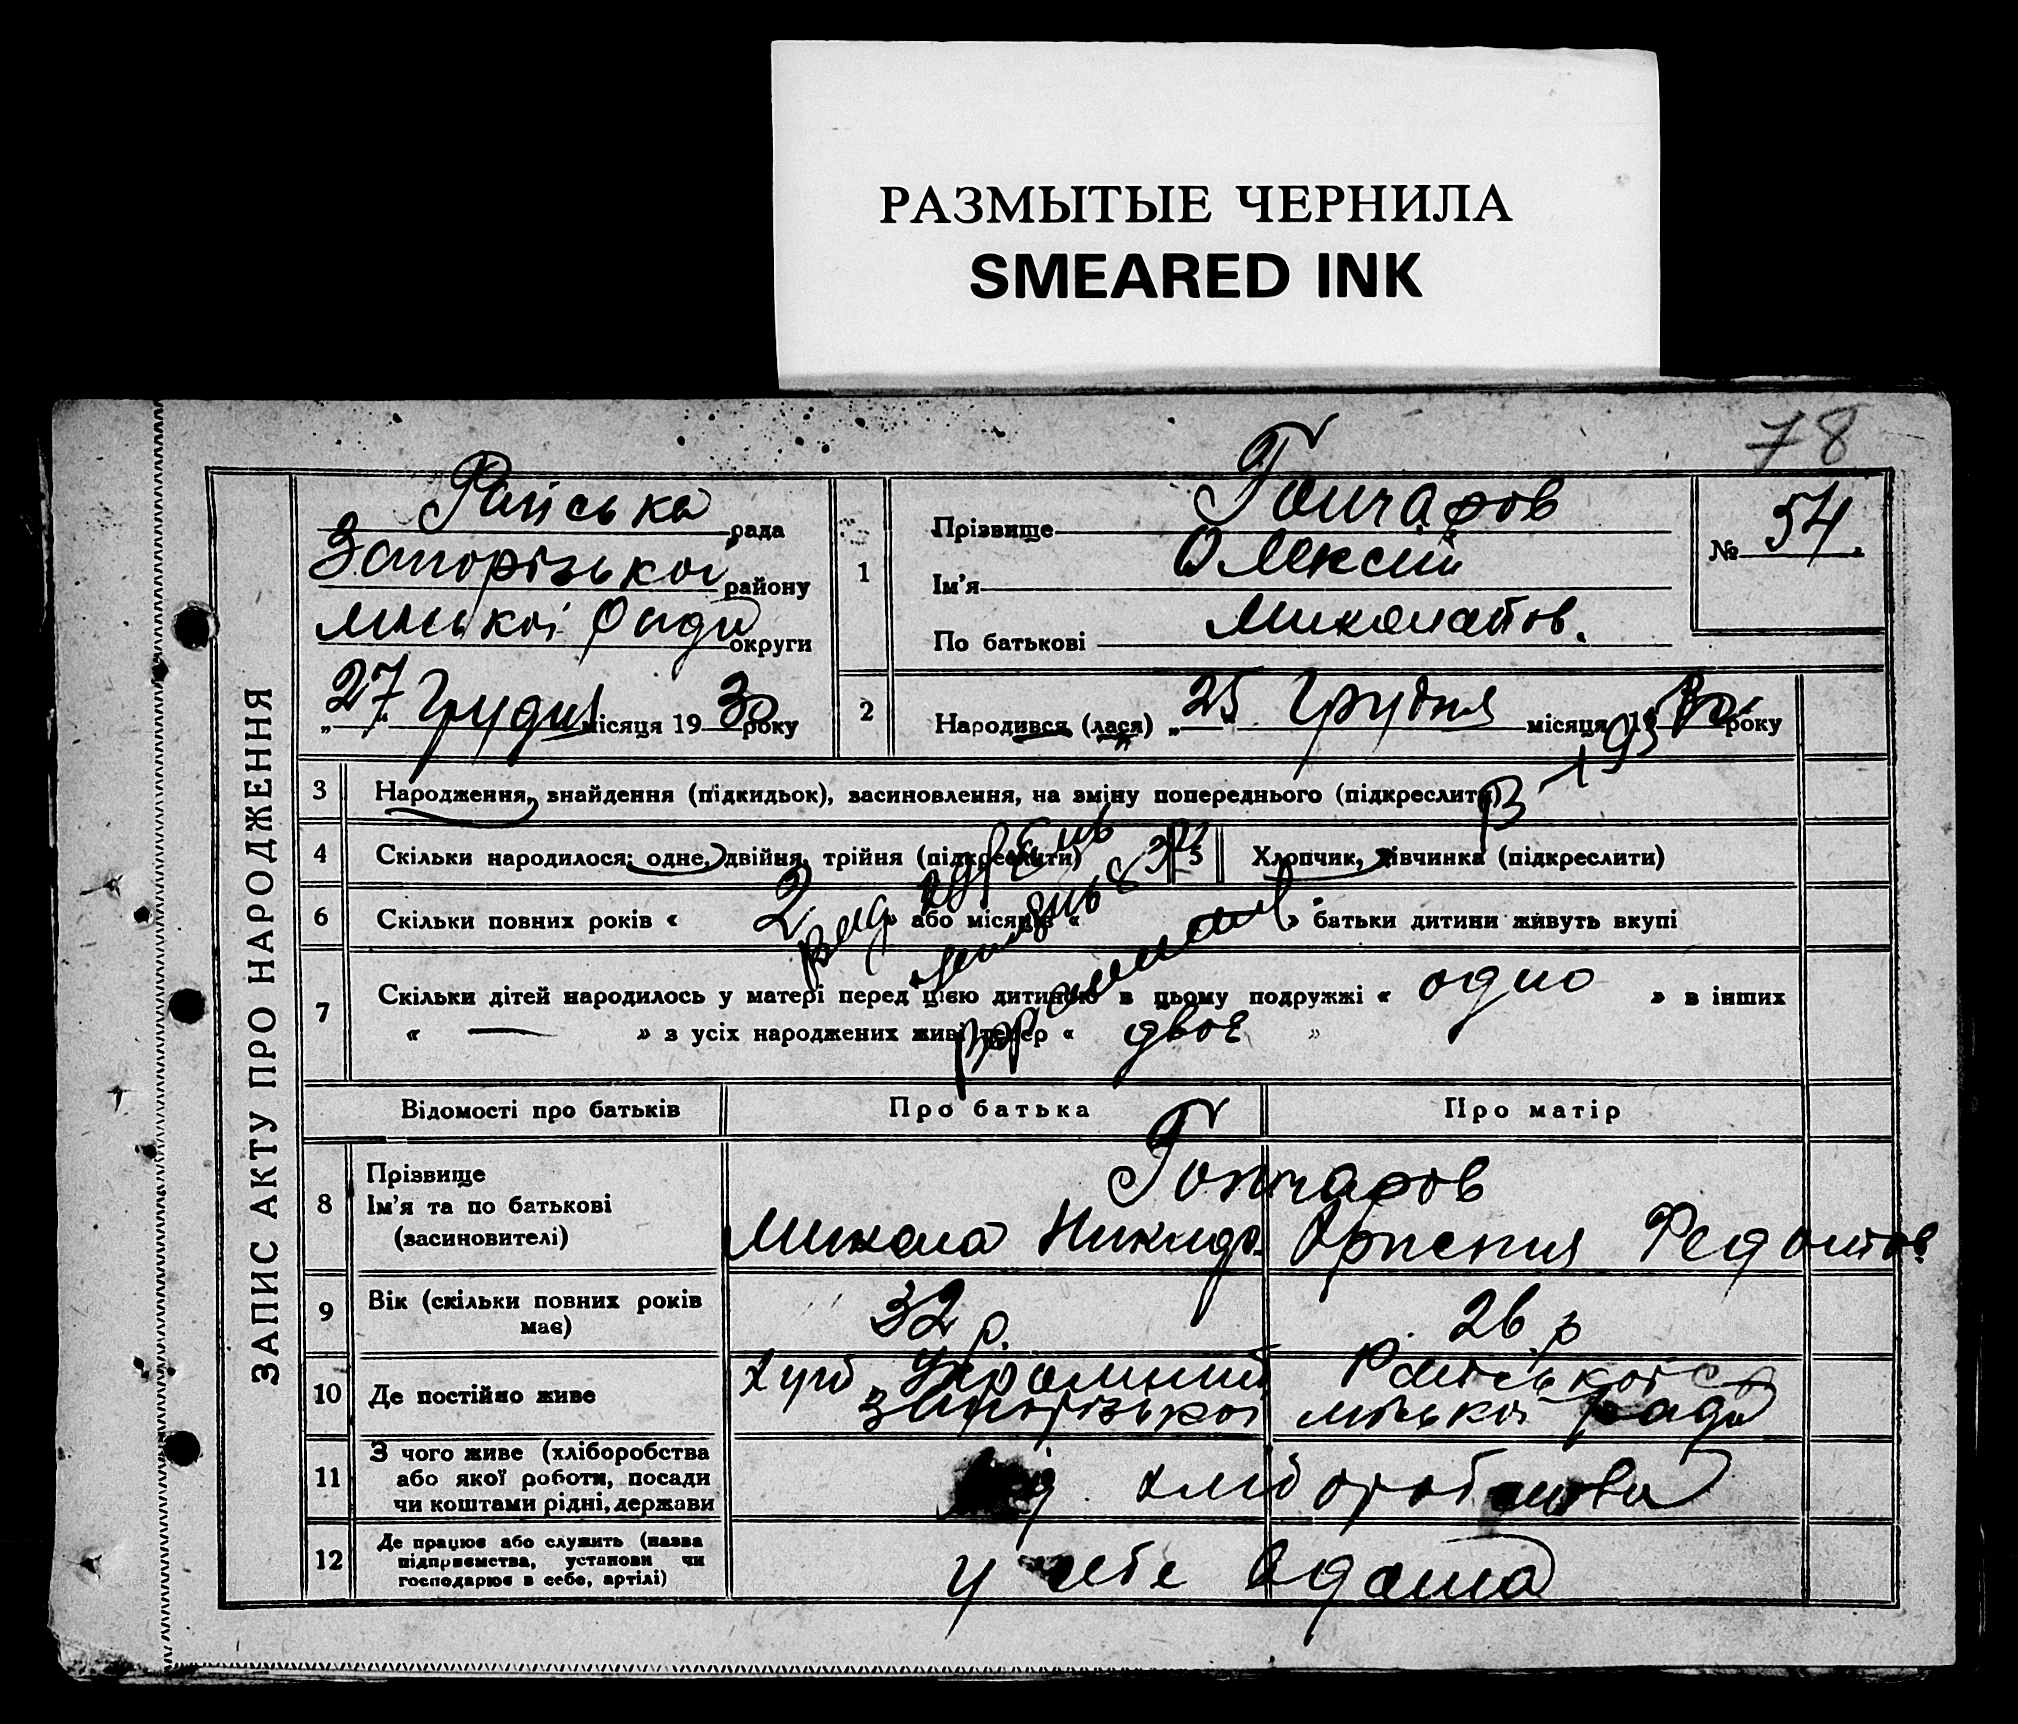 РАЗМЫТЫЕ ЧЕРНИЛА
SMEARED INK
78
ЗАПИС АКТУ ПРО НАРОДЖЕННЯ
Райська рада
Запорізької району
міської ради округи
„27" Грудня місяця 1930 року
1
Прізвище Гончаров
Ім'я Олексій
По батькові Миколайов.
№ 54.
2
Народився (лася) „25 Грудня місяця 1930 року
3 Народження, знайдення (підкидьок), засиновлення, на зміну попереднього (підкреслити)
4 Скільки народилося: одне, двійня, трійня (підкреслити)
5 Хлопчик, дівчинка (підкреслити)
6 Скільки повних років « 2 » або місяців « » батьки дитини живуть вкупі
7 Скільки дітей народилось у матері перед цією дитиною в цьому подружжі « одно » в інших
« — » з усіх народжених живі тепер « двоє »
Відомості про батьків Про батька Про матір
8 Прізвище
Ім'я та по батькові
(засиновителі)
Гончаров
Микола Никидр. Федотов.
9 Вік (скільки повних років
має)
32 р. 26 р
10 Де постійно живе
Райської
Запорізької міської ради
11 З чого живе (хліборобства
або якої роботи, посади
чи коштами рідні, держави
хліборобства
12 Де працює або служить (назва
підприємства, установи чи
господарює в себе, артілі)
у себе вдома